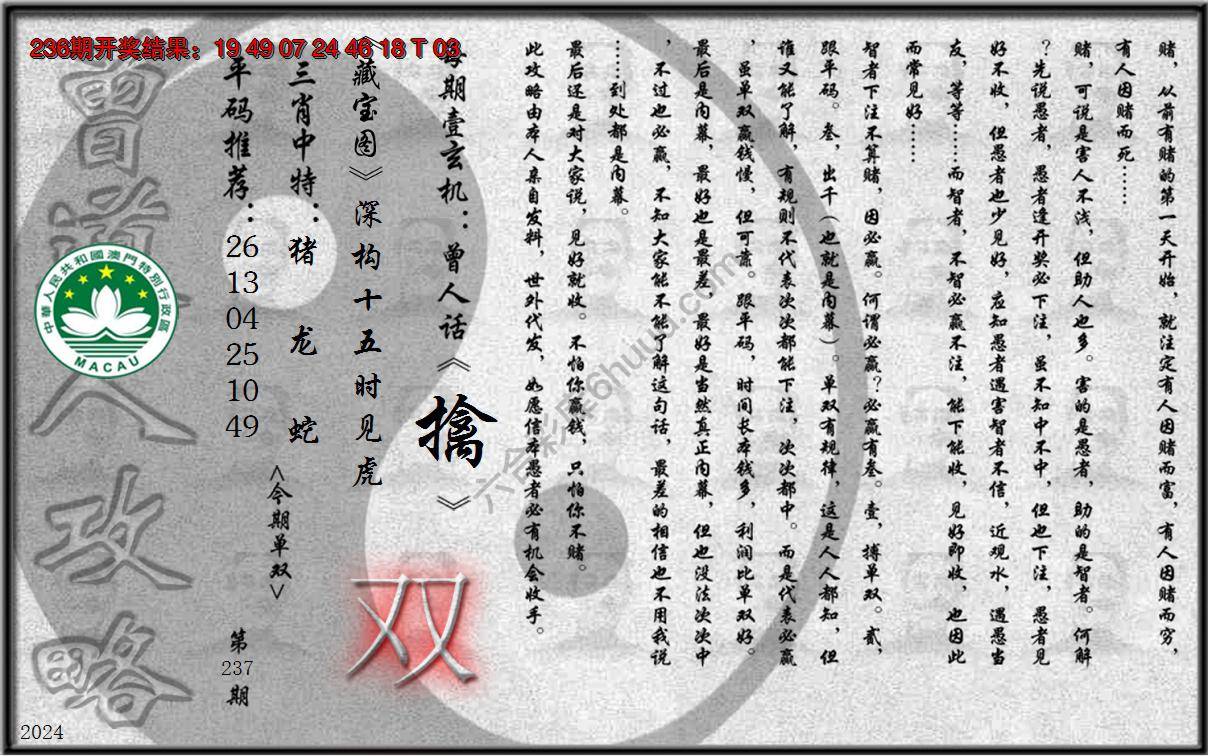 236期开奖结果：19 49 07 24 46 18 T 03
赌，从前有赌的第一天开始，就注定有人因赌而富，有人因赌而穷，
有人因赌而死……
赌，可说是害人不浅，但助人也多。害的是愚者，助的是智者。何解
？先说愚者，愚者逢开奖必下注，虽不知中不中，但也下注，愚者见
好不收，但愚者也少见好，应知愚者遇害智者不信，近观水，遇愚当
友，等等……而智者，不智必赢不注，能下能收，见好即收，也因此
而常见好……
智者下注不算赌，因必赢。何谓必赢？必赢有叁。壹，搏单双。贰，
跟平码。叁，出千（也就是内幕）。单双有规律，这是人人都知，但
谁又能了解，有规则不代表次次都能下注，次次都中。而是代表必赢
，虽单双赢钱慢，但可靠。跟平码，时间长本钱多，利润比单双好。
最后是内幕，最好也是最差，最好是当然真正内幕，但也没法次次中
，不过也必赢，不知大家能不能了解这句话，最差的相信也不用我说
……到处都是内幕。
最后还是对大家说，见好就收。不怕你赢钱，只怕你不赌。
此攻略由本人亲自发料，世外代发，如愿信本愚者必有机会收手。
每期壹玄机：曾人话《擒》
《藏宝图》深构十五时见虎
双
三肖中特：猪 龙 蛇
<今期单双>
平码推荐：26 13 04 25 10 49
第237期
曾道人攻略
中華人民共和國澳門特別行政區
MACAU
六合彩库6huuu.com
2024